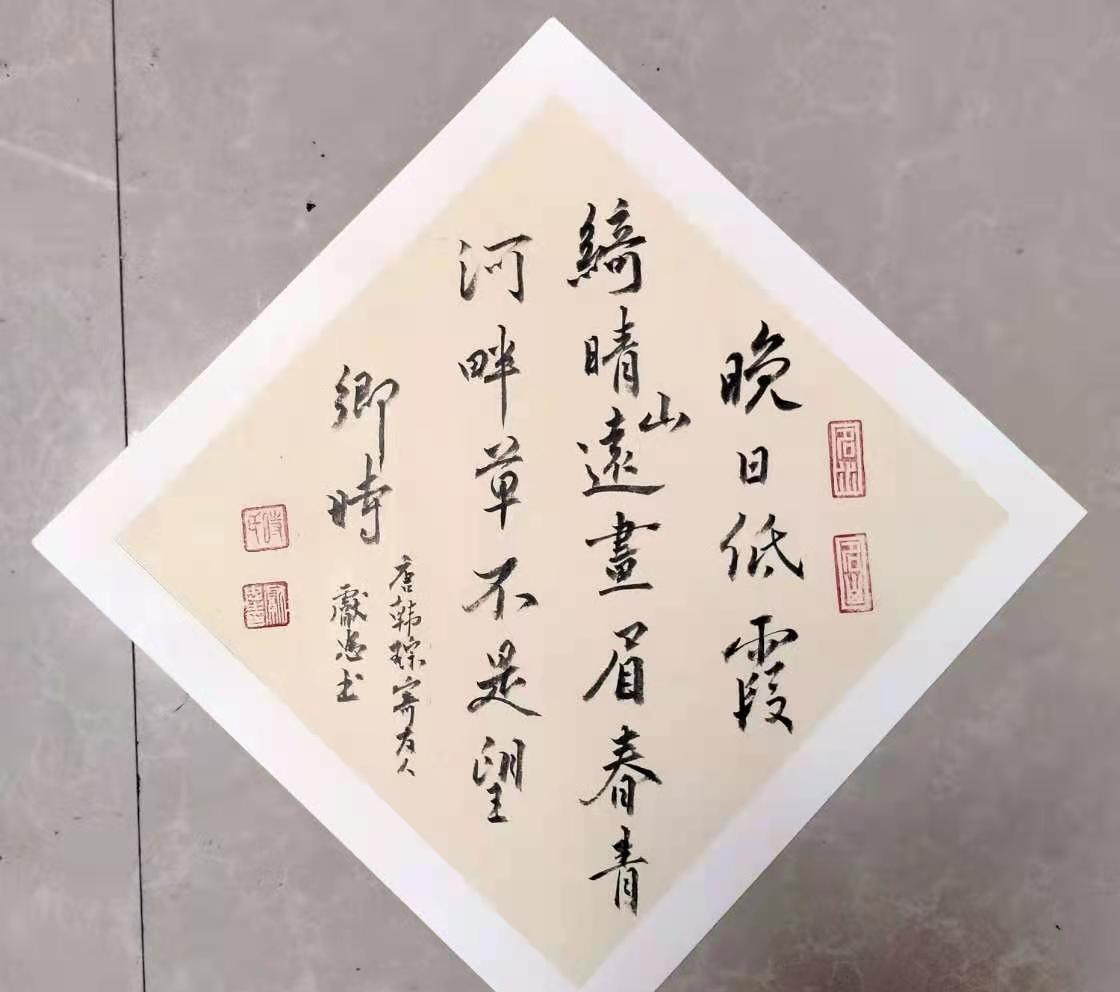 晚日低霞
綺晴山遠畫眉春青
河畔草不是望
鄉時
唐韩琮寄友人
獻忠书